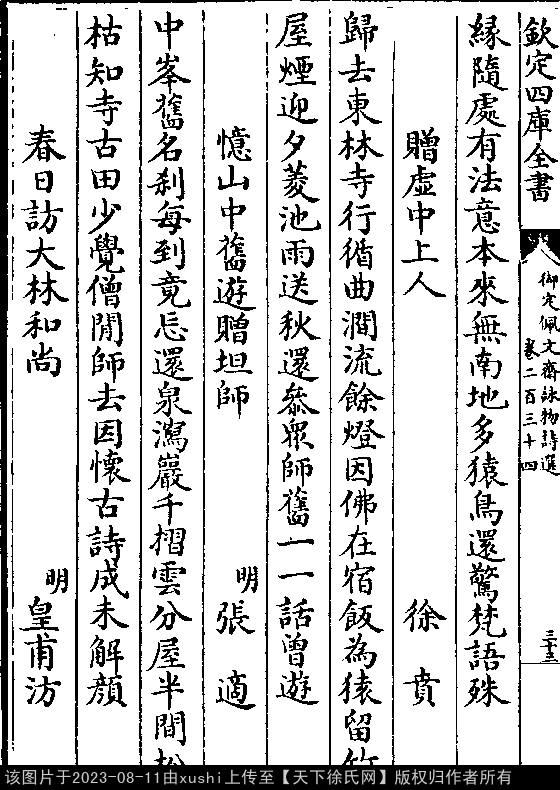 欽定四庫全書
御定佩文齋詠物詩選
卷二百三十四
三十三
緣隨處有法意本來無南地多猿鳥還驚梵語殊
贈虛中上人 徐賁
歸去東林寺行循曲澗流餘燈因佛在宿飯為猿留竹
屋煙迎夕菱池雨送秋還叅眾師舊一一話曾遊
憶山中舊遊贈坦師 明張適
中峯舊名刹每到竟忘還泉瀉巖千摺雲分屋半間松
枯知寺古田少覺僧閒師去因懷古詩成未解顏
春日訪大林和尚 明皇甫汸
该图片于2023-08-11由xushi上传至【天下徐氏网】版权归作者所有